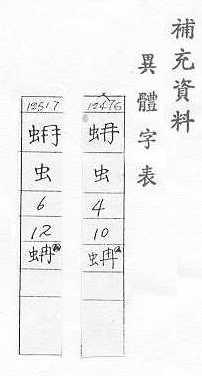 補充資料
異體字表
12476
虫
4
10
蚺
12517
虫
6
12
蚺